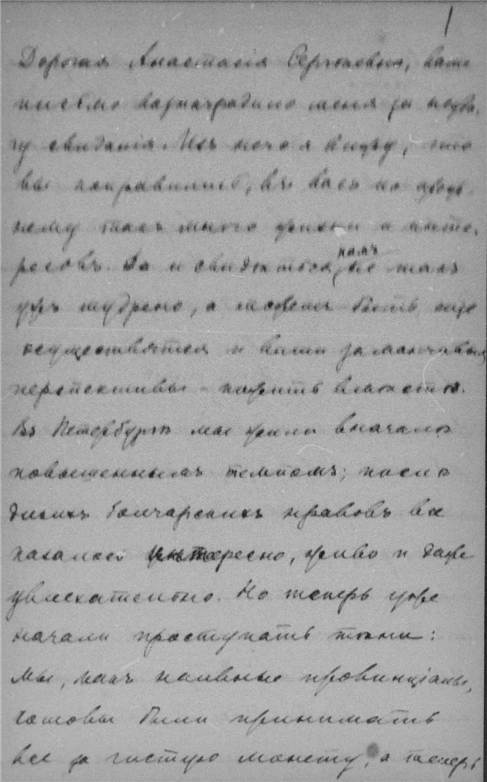 1
Дорогая Анастасія Сергѣевна, ваше
письмо вознаградило меня за неуда-
чу свиданія. Изъ него я вижу, что
вы поправились, въ васъ по преж-
нему такъ много жизни и инте-
ресовъ. Да и свидѣться намъ не такъ
ужъ мудрено, а можетъ быть еще
осуществятся и ваши заманчивыя
перспективы – пожить вмѣстѣ.
Въ Петербургѣ мы жили вначалѣ
повышеннымъ темпомъ; послѣ
дикихъ болгарскихъ нравовъ все
казалось интересно, живо и даже
увлекательно. Но теперь уже
начали проступать тѣни:
мы, какъ наивные провинціалы,
готовы были принимать
все за чистую монету, а теперь